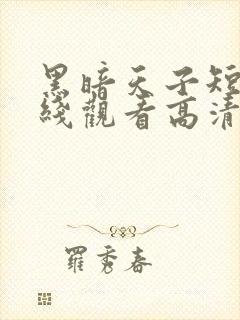 黑暗天子短
綫觀看高清
羅秀春